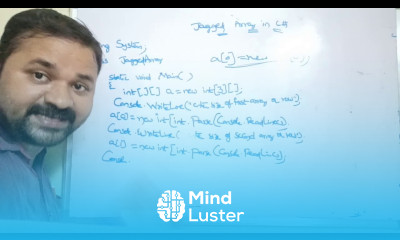 Jagged Array in C#
System;
JaggedArray a[0]=new
static void Main()
int[][] a = new int[3][];
Console.WriteLine(" size of first array a row");
a[0] = new int[int.Parse(Console.ReadLine());
Console.WriteLine(" size of second array a row");
a[1] = new int[int.Parse(Console.ReadLine());
Console
Mind
Luster